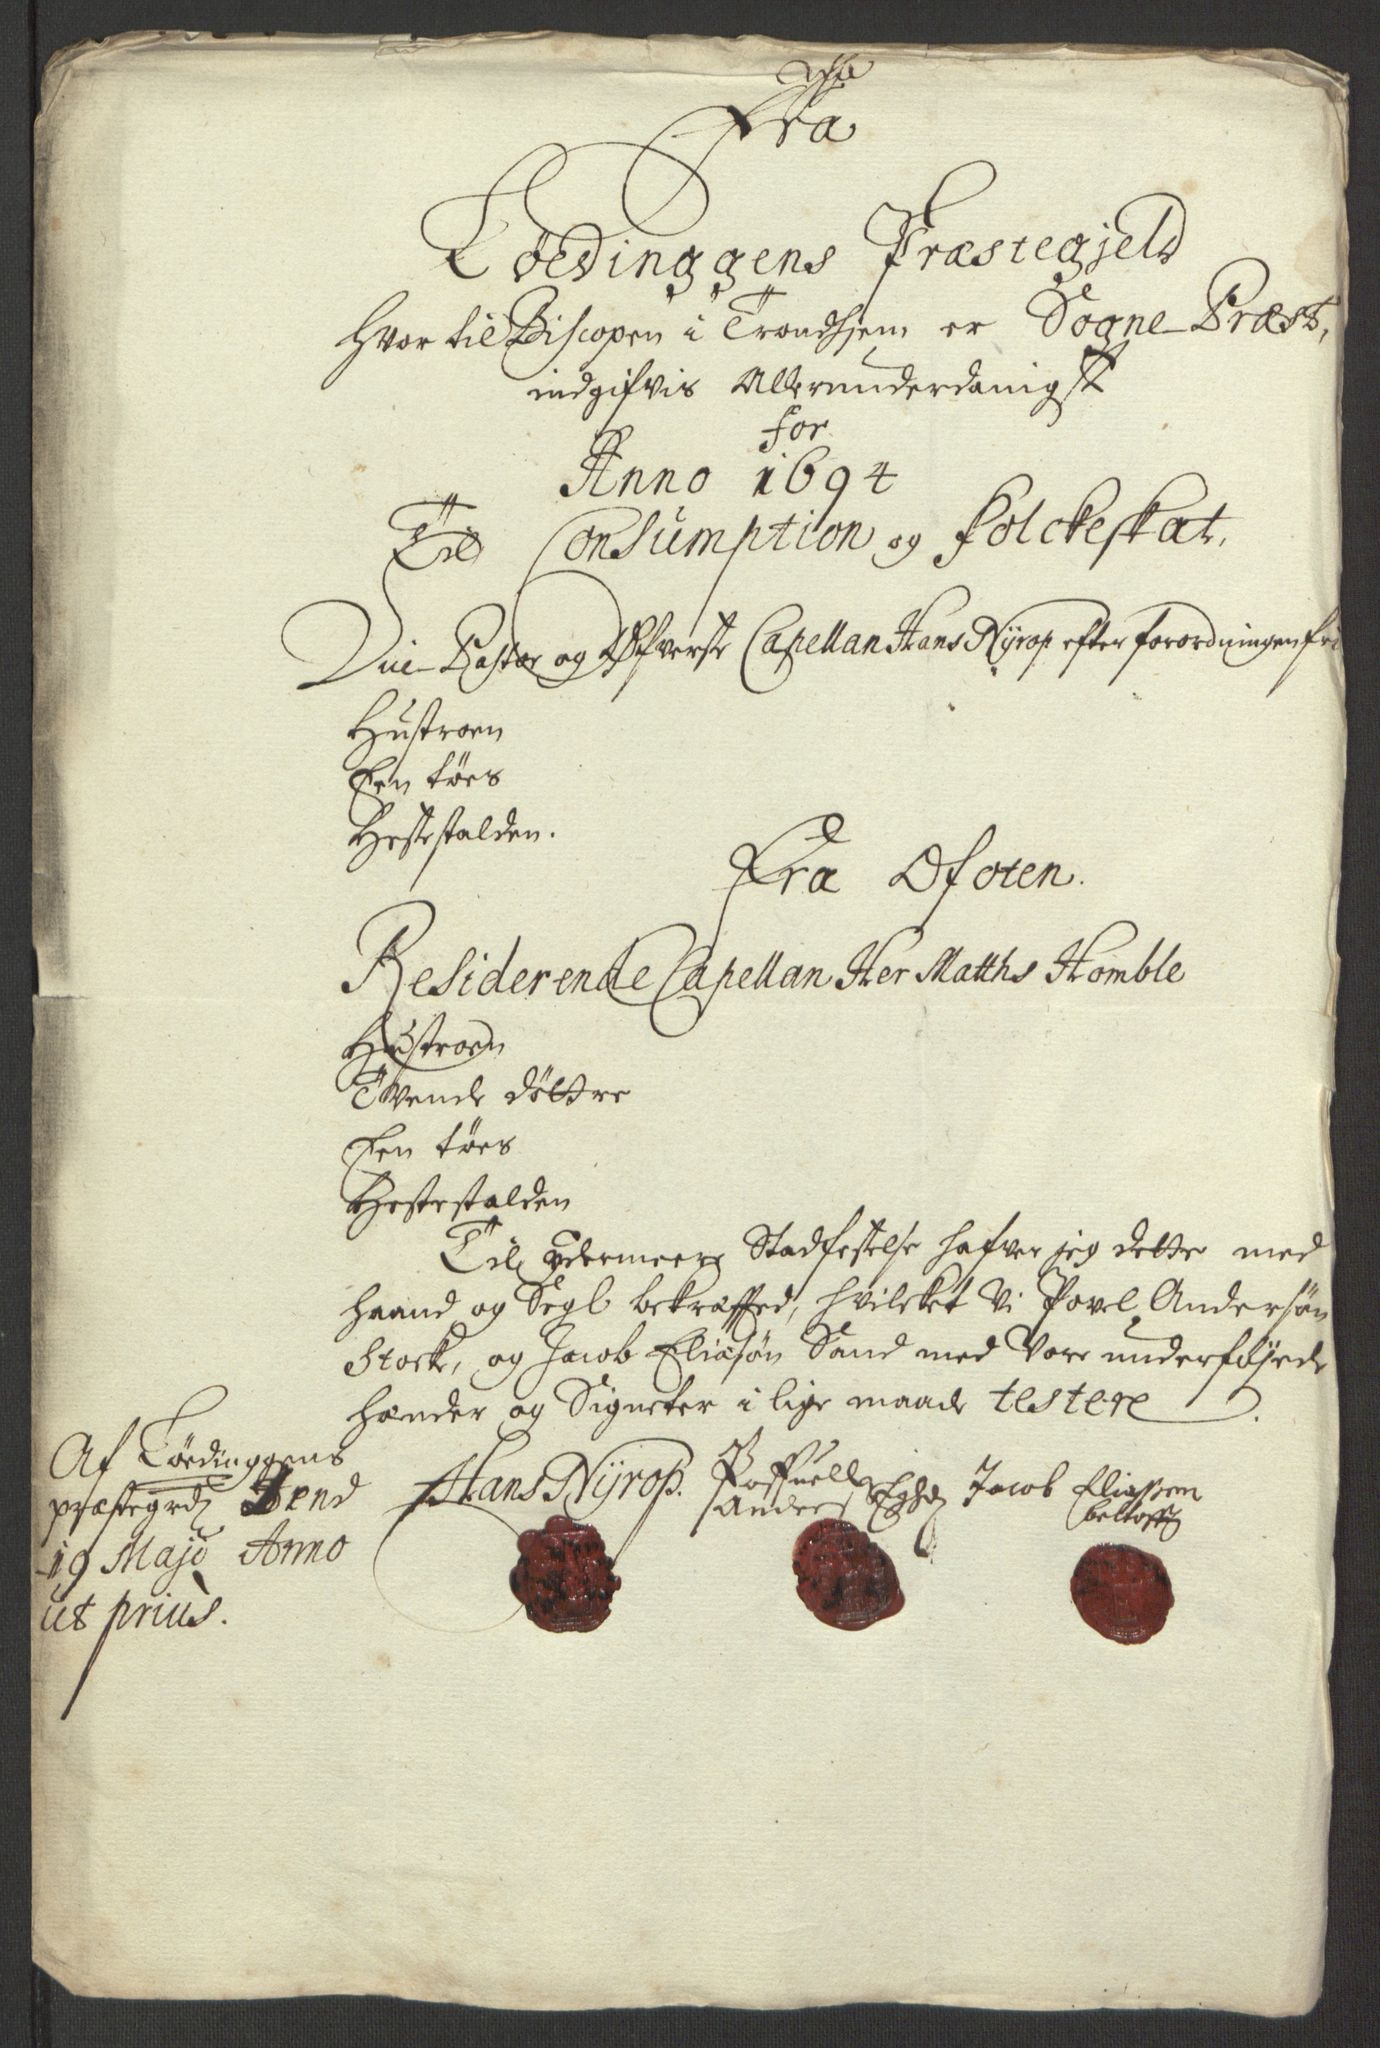 Fra
Løedinggens Præstegjeld
hvor til Biscopen i Trondhjem er Sogne Præst,
indgifvis Allerunderdanigst
for
Anno 1694
Til Consumption og Folckeskat.
Vice Pastor og Øfverste Capellan Hans Nÿrop efter forordningen fri
Hustroen
Een tøes
Hestestalden.
Fra Ofoten.
Residerende Capellan Her Matths Homble
Hustroen
Tvende døttre
Een tøes
Hestestalden
Til ydermeere Stadfestelse hafver jeg dette med
haand og Segl bekræfted, hvilcket Vi Povel Andersøn
Stock, og Jacob Eliasøn Sand med Vore underføjede
hænder og Signeter i lige maade testere.
Af Løedinggens
præstegrd Dend
19 Maji Anno
ut prius.
Hans Nÿrop.
Poffuell
Anders Eghd
Jacob Eliassen